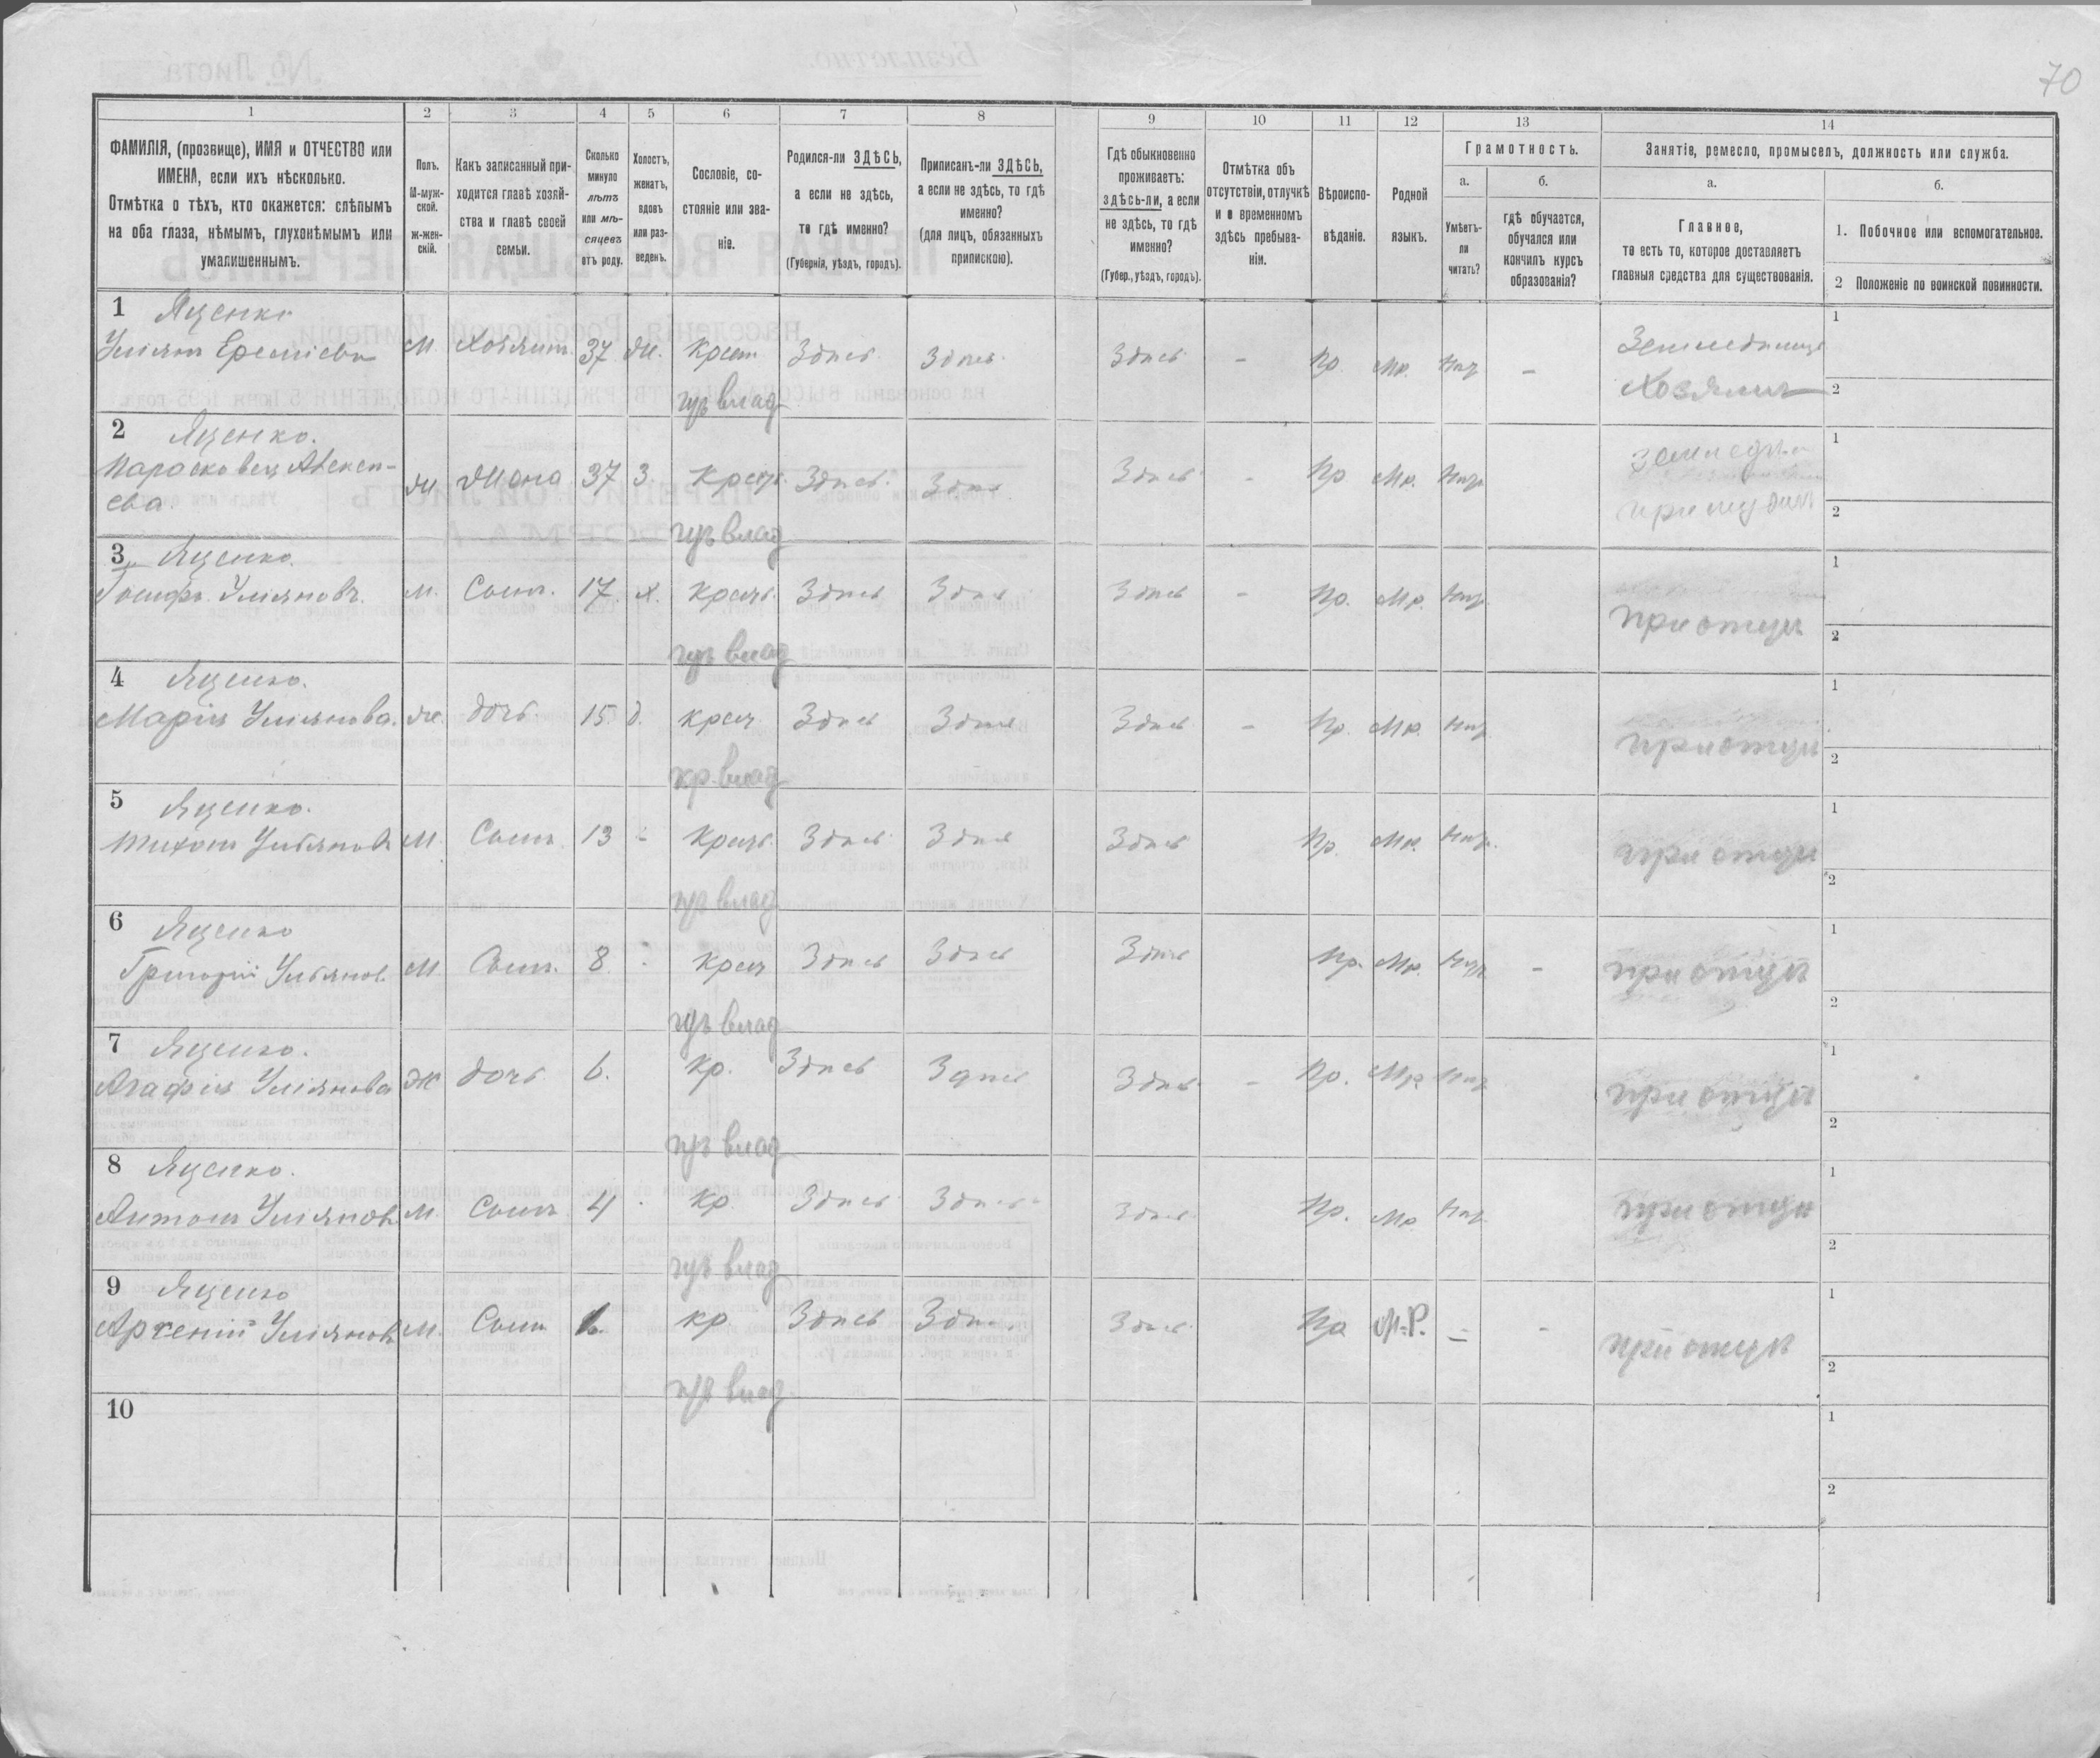 70
1 2 3 4 5 6 7 8 9 10 11 12 13 14
ФАМИЛІЯ, (прозвище), ИМЯ и ОТЧЕСТВО или
ИМЕНА, если ихъ нѣсколько.
Отмѣтка о тѣхъ, кто окажется: слѣпымъ
на оба глаза, нѣмымъ, глухонѣмымъ или
умалишеннымъ.
Полъ.
М-муж-
ской.
ж-жен-
скій.
Какъ записанный при-
ходится главѣ хозяй-
ства и главѣ своей
семьи.
Сколько
минуло
лѣтъ
или мѣ-
сяцевъ
отъ роду.
Холостъ,
женатъ,
вдовъ
или раз-
веденъ.
Сословіе, со-
стояніе или зва-
ніе.
Родился-ли ЗДѢСЬ,
а если не здѣсь,
то гдѣ именно?
(Губернія, уѣздъ, городъ).
Приписанъ-ли ЗДѢСЬ,
а если не здѣсь, то гдѣ
именно?
(для лицъ, обязанныхъ
припискою).
Гдѣ обыкновенно
проживаетъ:
здѣсь-ли, а если
не здѣсь, то гдѣ
именно?
(Губер., уѣздъ, городъ).
Отмѣтка объ
отсутствіи, отлучкѣ
и о временномъ
здѣсь пребыва-
ніи.
Вѣроиспо-
вѣданіе.
Родной
языкъ.
Грамотность.
а.
Умѣетъ-
ли
читать?
б.
гдѣ обучается,
обучался или
кончилъ курсъ
образованія?
Занятіе, ремесло, промыселъ, должность или служба.
а.
Главное,
то есть то, которое доставляетъ
главныя средства для существованія.
б.
1. Побочное или вспомогательное.
2 Положеніе по воинской повинности.
1 Яценко
Уліянъ Ереміевъ М. Хозяинъ 37 Ж. Крест. Здѣсь Здѣсь Здѣсь - Пр. Мр. Нѣт - Хозяинъ 1 2
влад
2 Яценко.
Алексѣ-
ева. Ж Жена 37 З. Крест. Здѣсь Здѣсь Здѣсь - Пр Мр. Нѣт 1 2
влад
3 Яценко.
Іосифъ Уліяновъ. М. Сынъ. 17. Х. Крест. Здѣсь Здѣсь Здѣсь - Пр. Мр. Нѣт при отцѣ 1 2
влад
4 Яценко.
Марія Уліянова. Ж. дочь 15 д. Крест Здѣсь Здѣсь Здѣсь - Пр. Мр. Нѣт при отцѣ 1 2
влад
5 Яценко.
Тихонъ Ульяновъ М. Сынъ 13 - Крест. Здѣсь Здѣсь Здѣсь Пр. Мр. Нѣт. при отцѣ 1 2
влад
6 Яценко
Григорій Ульянов. М. Сынъ. 8. Крест Здѣсь Здѣсь Здѣсь Пр. Мр. Нѣт - при отцѣ 1 2
влад
7 Яценко.
Агафія Уліянова Ж дочь 6. Кр. Здѣсь Здѣсь Здѣсь - Пр. Мр Нѣт при отцѣ 1 2
влад
8 Яценко.
Антонъ Уліяновъ М. Сынъ 4 Кр. Здѣсь Здѣсь Здѣсь Пр. Мр. Нѣт при отцѣ 1 2
влад
9 Яценко
Уліяновъ М. Сынъ Кр. Здѣсь Здѣсь Здѣсь Пр М.Р. - - при отцѣ 1 2
влад
10 1 2